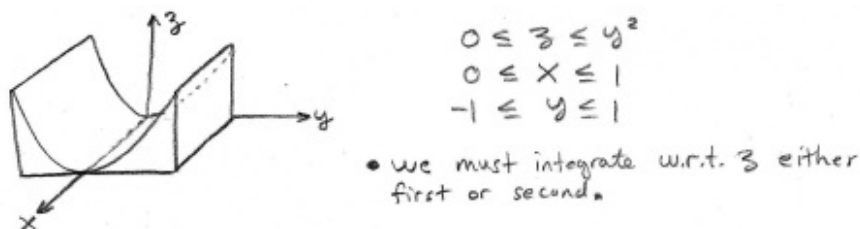 z
y
x
0 ≤ z ≤ y²
0 ≤ x ≤ 1
-1 ≤ y ≤ 1
• we must integrate w.r.t. z either
first or second.